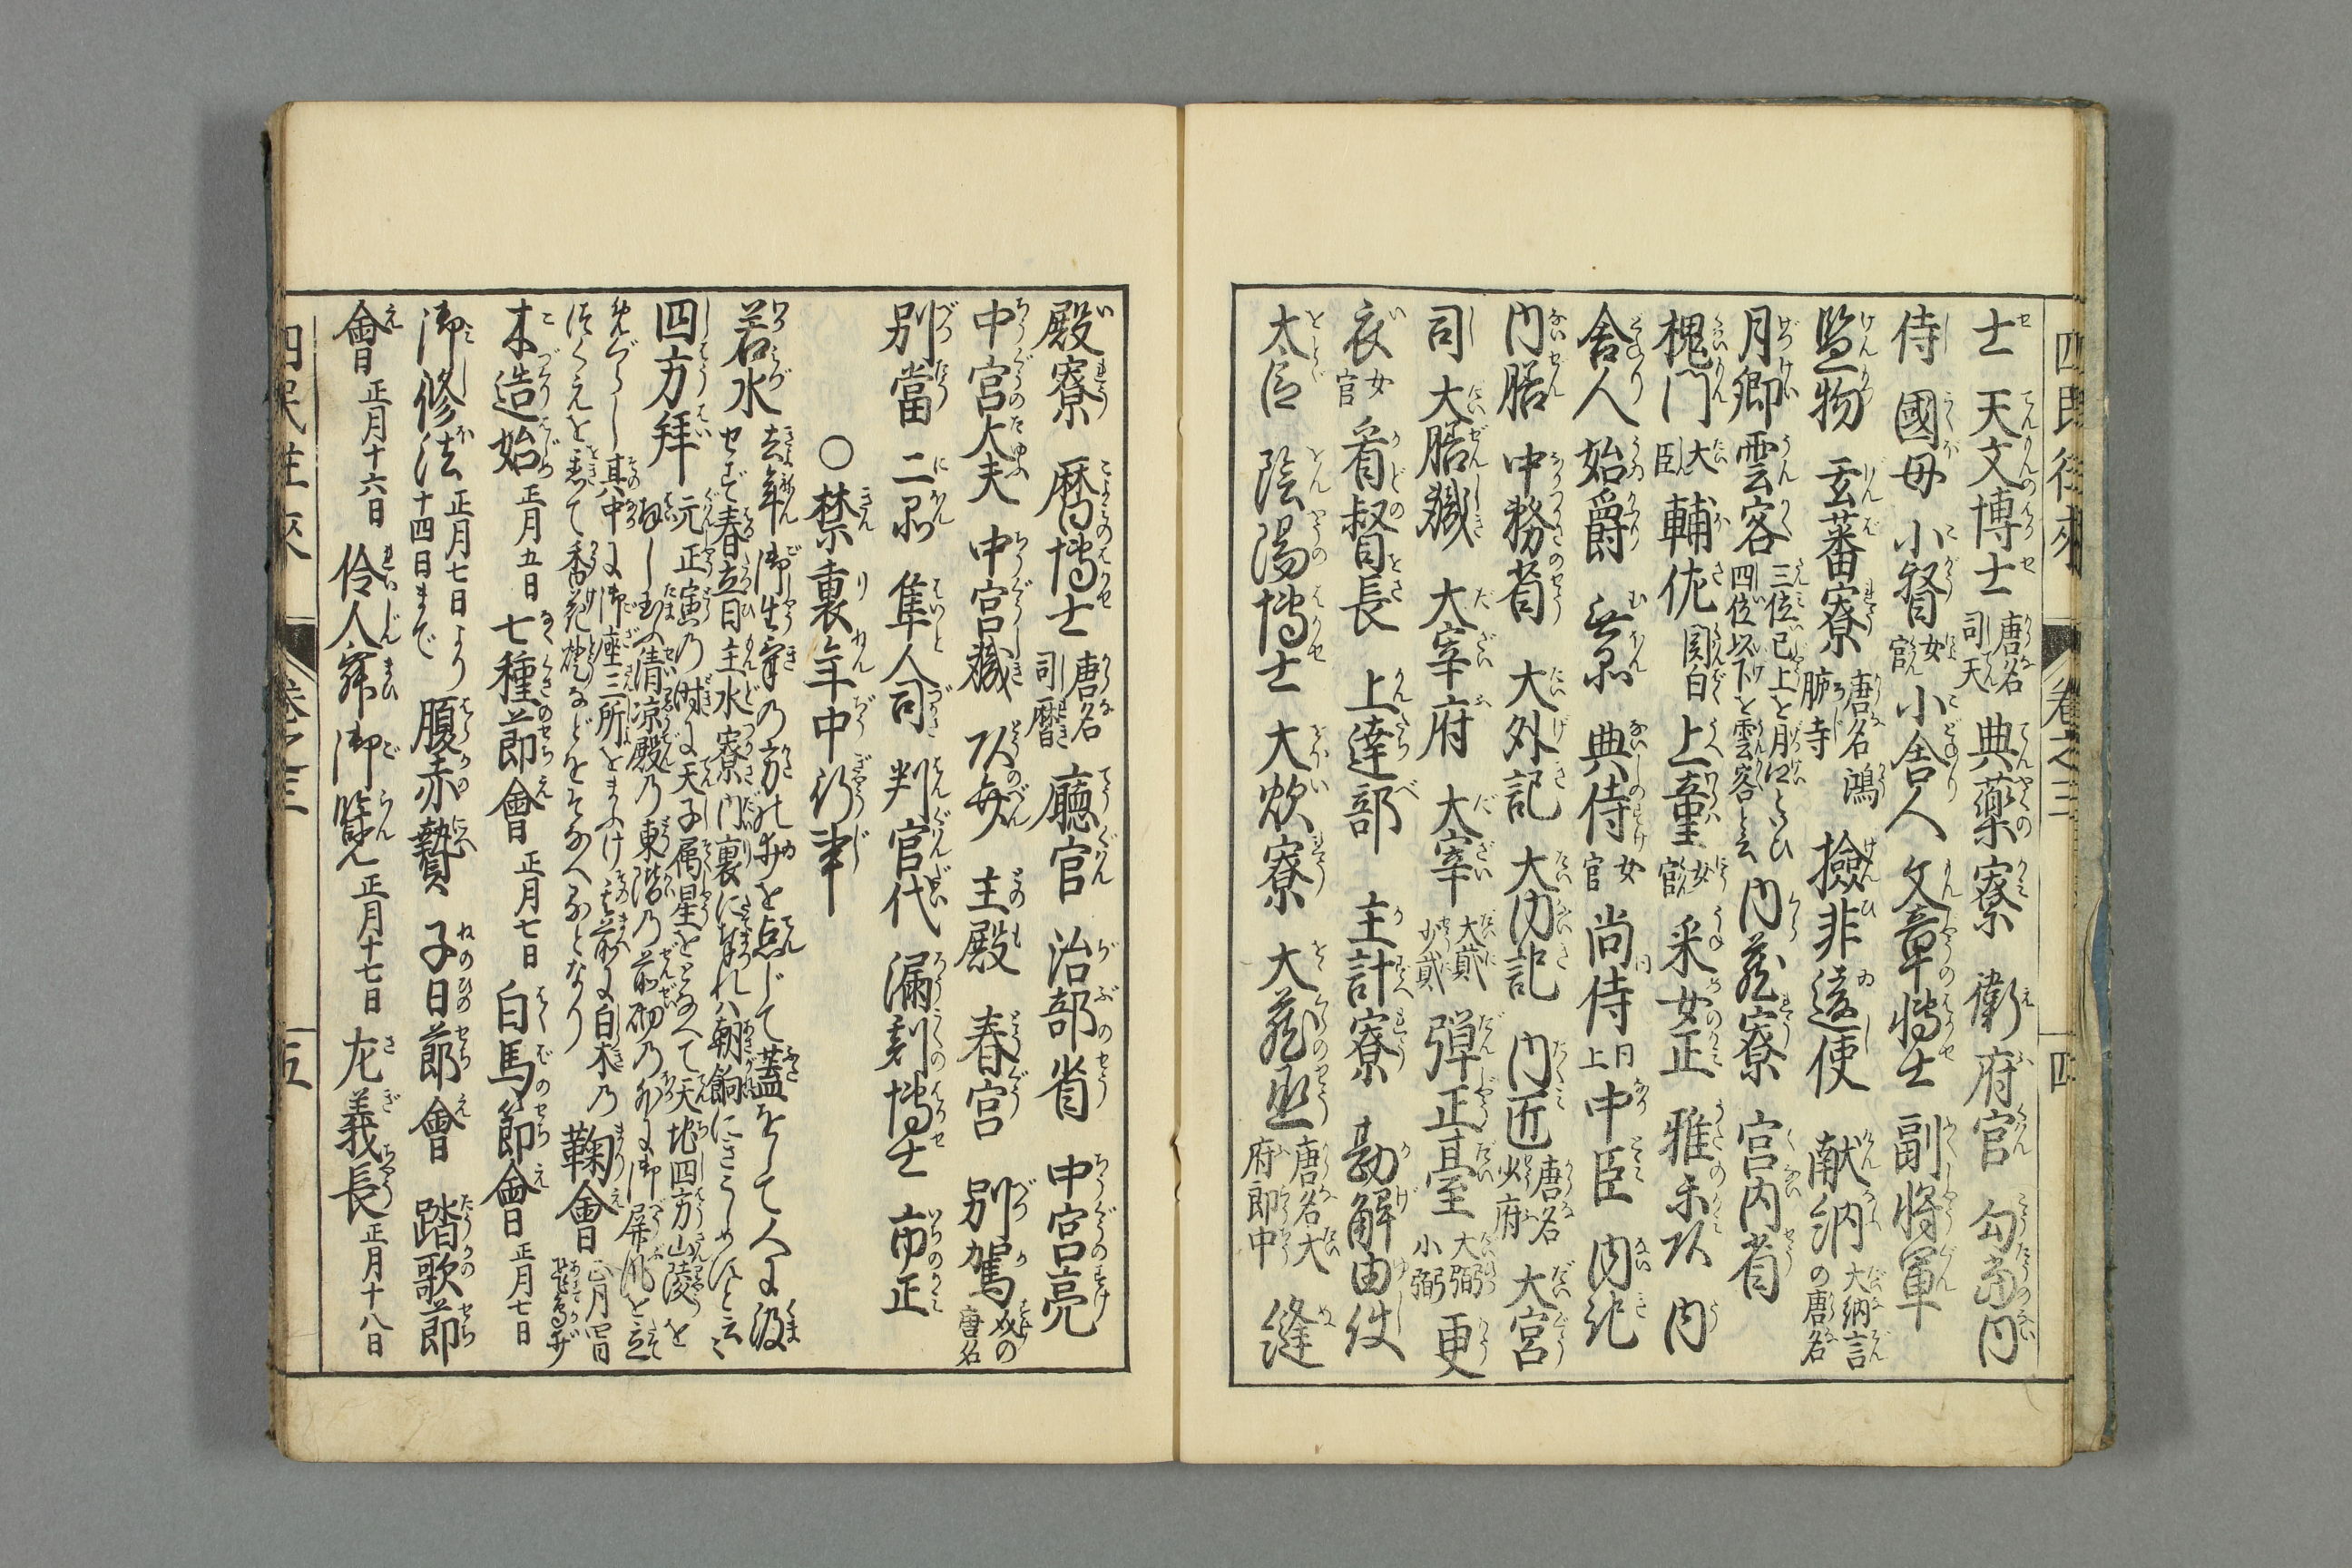 四民往來 卷之三 四
士 天文博士 唐名司天 典藥寮 衛府官 勾當内
侍 國母 小督 女官 小舎人 文章博士 副将軍
監物 玄蕃寮 唐名鴻臚寺 撿非違使 献納 大納言の唐名
月卿雲客 三位已上を月卿といひ四位以下を雲客と云 内蔵寮 宮内省
槐門 大臣 輔佐 関白 上童 女官 采女正 雅樂頭 内
舎人 始爵 無品 典侍 女官 尚侍 同上 中臣 内記
内膳 中務省 大外記 大内記 内匠 唐名少府 大宮
司 大膳職 大宰府 大宰 大貳少貳 弾正臺 大弼小弼 更
衣 女官 看督長 上達部 主計寮 勘解由使
大臣 陰陽博士 大炊寮 大蔵丞 唐名大府郎中 縫
殿寮 暦博士 唐名司暦 廳官 治部省 中宮亮
中宮大夫 中宮職 頭弁 主殿 春宮 別駕 介の唐名
別當 二品 隼人司 判官代 漏刻博士 市正
○禁裏年中行事
若水 去年御生氣の方の井を点じて蓋をして人に汲
せず春立日主水寮内裏に奉れハ朝餉にきこしめすと云々
四方拜 元正寅の時に天子属星をとなへて天地四方山陵を
拜し玉ふ清凉殿の東階の前砌の外に御屏風を立
めぐらし其中に御座三所をまふけ其前に白木の
つくえを置て香花燈などをそなへるとなり 鞠會 正月四日飛鳥井
木造始 正月五日 七種節會 正月七日 白馬節會 正月七日
御修法 正月七日より十四日まで 腹赤贄 子日節會 踏歌節
會 正月十六日 伶人舞御覧 正月十七日 左義長 正月十八日
四民往來 卷之三 五